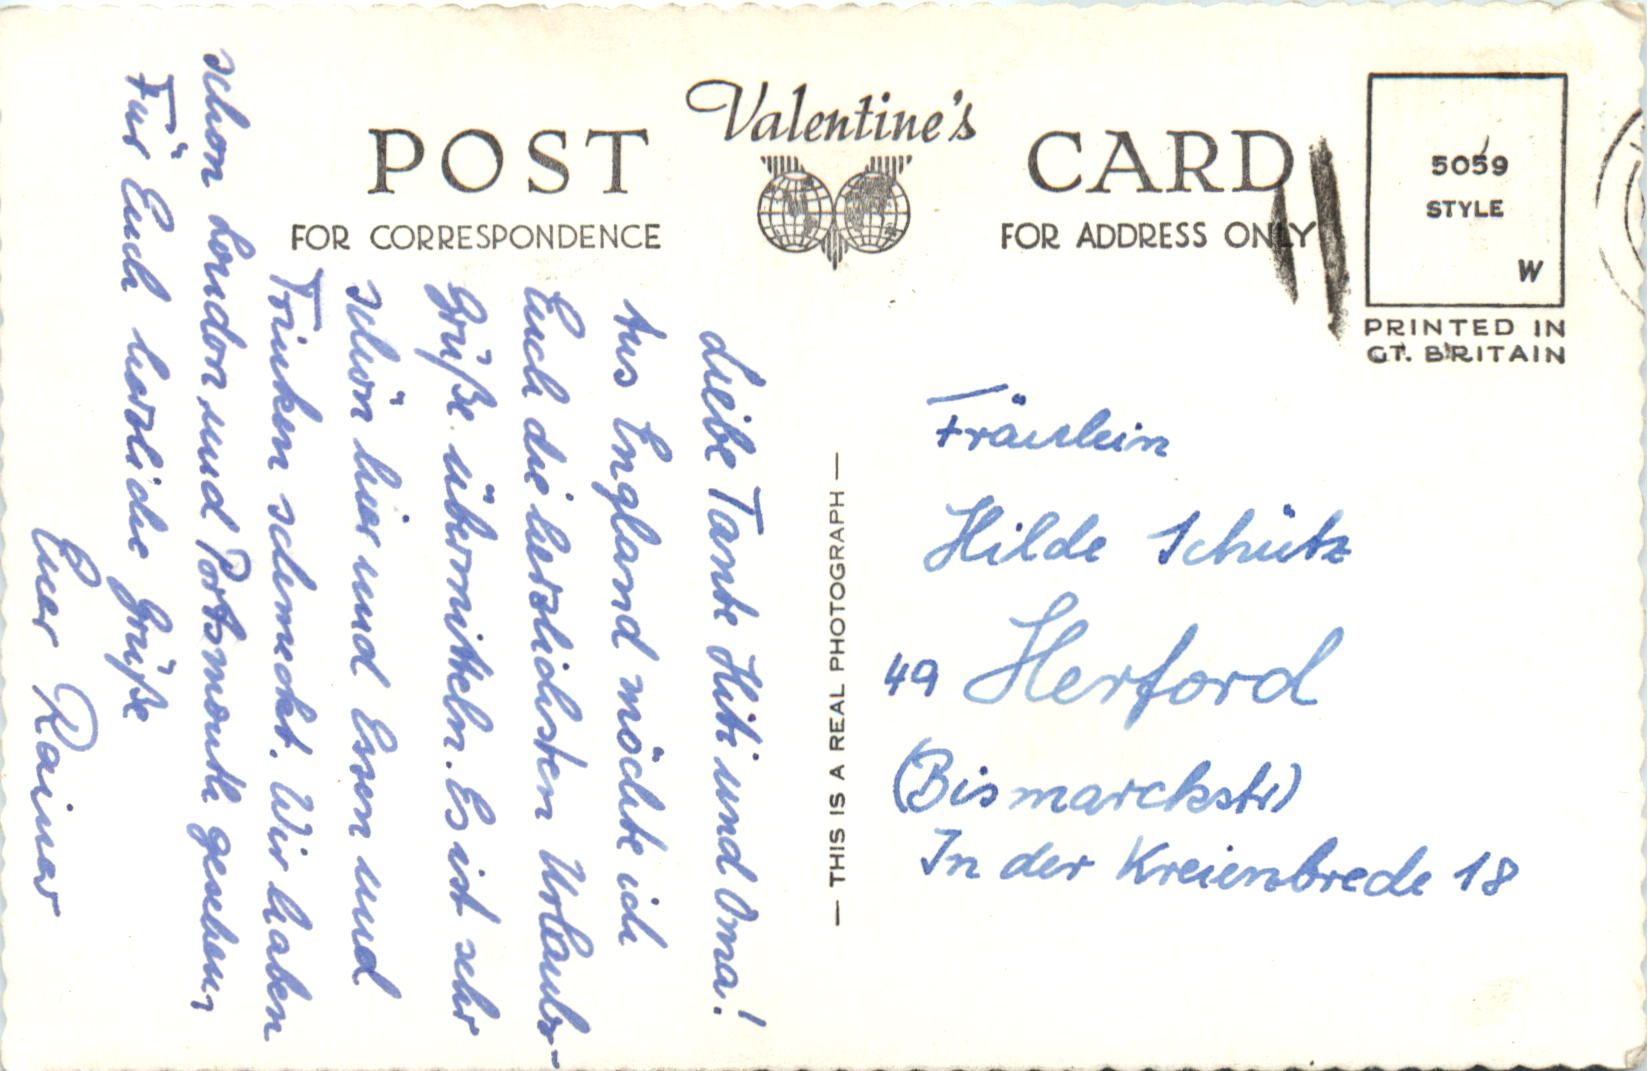 Valentine's
POST CARD
FOR CORRESPONDENCE
FOR ADDRESS ONLY
5059
STYLE
W
PRINTED IN
GT. BRITAIN
Liebe Tante Hiti und Oma!
Aus England möchte ich
Euch die herzlichsten Urlaubs-
grüße übermitteln. Es ist sehr
schön hier und Essen und
Trinken schmeckt. Wir haben
schon London und Portsmouth gesehen,
Für Euch herzliche Grüße
Euer Rainer
— THIS IS A REAL PHOTOGRAPH —
Fräulein
Hilde Schütz
49 Herford
(Bismarckstr)
In der Kreienbrede 18